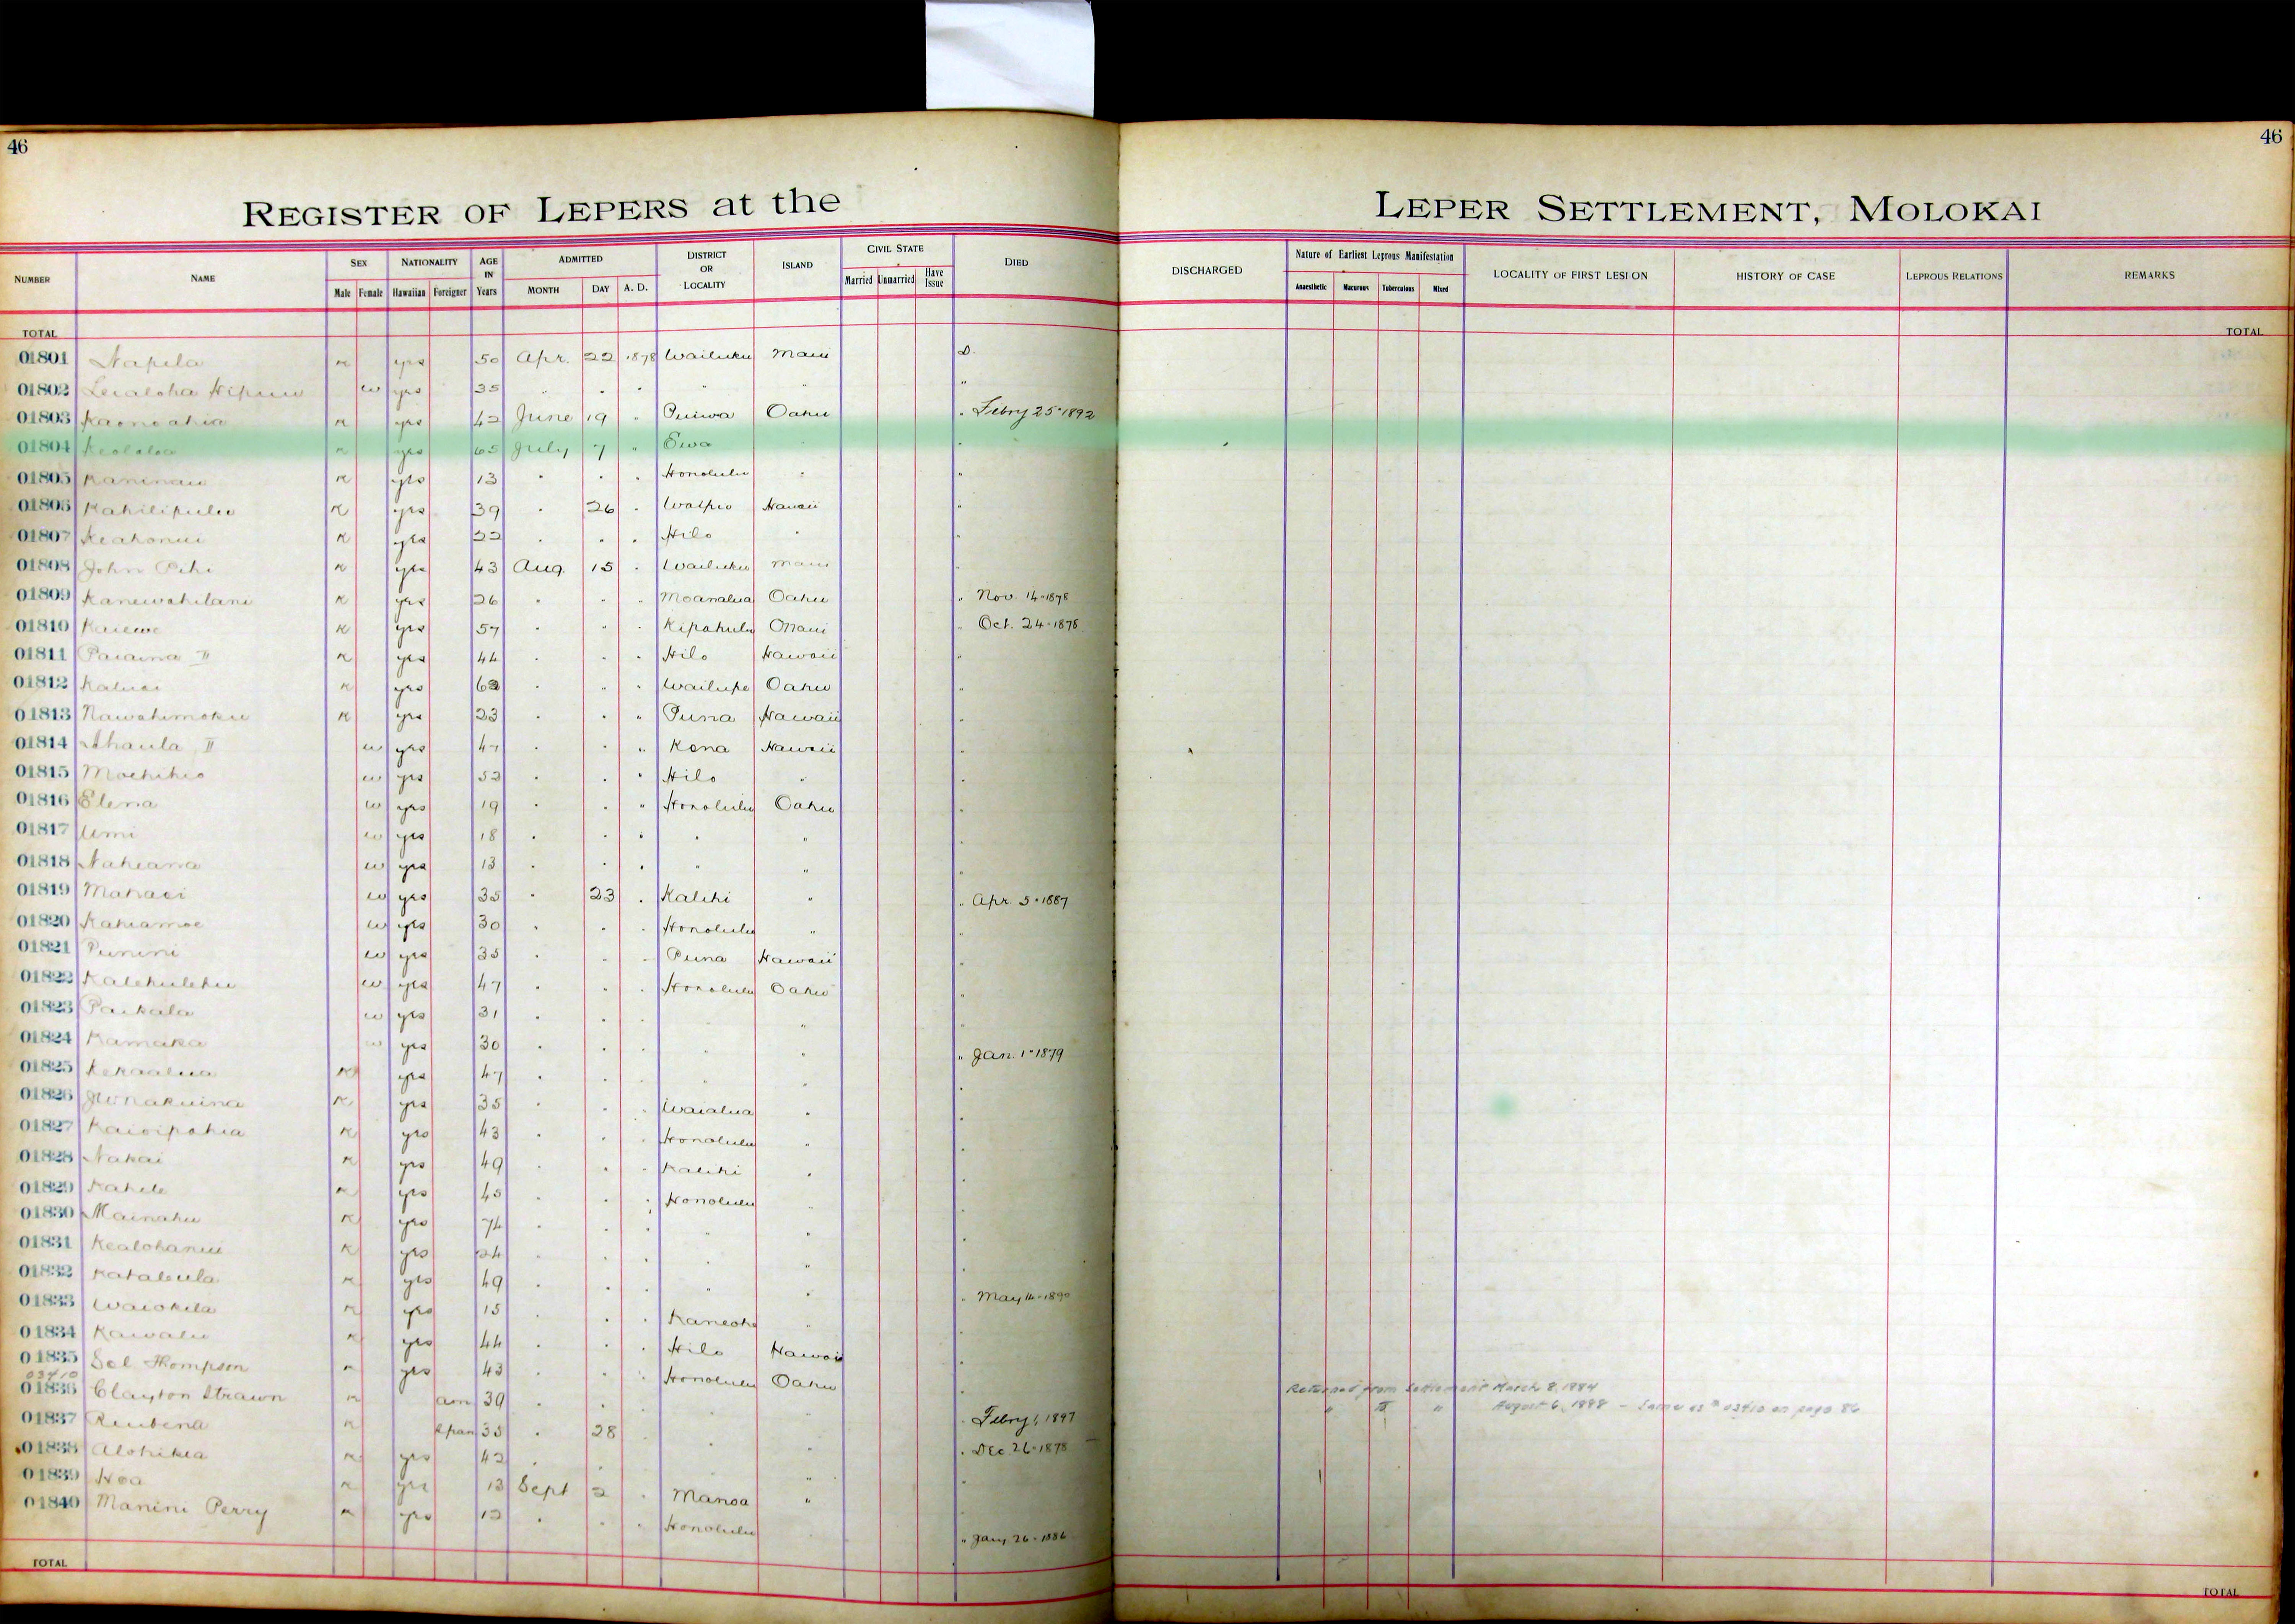 46
46
REGISTER OF LEPERS at the LEPER SETTLEMENT, MOLOKAI
NUMBER NAME SEX Male Female NATIONALITY Hawaiian Foreigner AGE IN Years ADMITTED MONTH DAY A. D. DISTRICT OR LOCALITY ISLAND CIVIL STATE Married Unmarried Have Issue DIED DISCHARGED Nature of Earliest Leprous Manifestation Anaesthetic Macurous Tuberculous Mixed LOCALITY OF FIRST LESION HISTORY OF CASE LEPROUS RELATIONS REMARKS
TOTAL TOTAL
01801 Napela yes 50 Apr. 22 1878 Wailuku Maui D.
01802 Lualoha w yes 35 " " " " " "
01803 Kaonoahia yes 42 June 19 " Puiwa Oahu " Febry 25-1892
01804 yes 65 July 7 " Ewa "
01805 Kaninau yes 13 " " " Honolulu " "
01806 Kahilipulu yes 39 " 26 " Waipio Hawaii "
01807 Keahonui yes 22 " " " Hilo " "
01808 John yes 43 Aug. 15 " Wailuku Maui "
01809 Kanewahilani yes 26 " " " Moanalua Oahu " Nov. 14-1878
01810 Kaiewe yes 57 " " " Kipahulu Maui " Oct. 24-1878
01811 Paiaina II yes 44 " " " Hilo Hawaii "
01812 Kaluai yes " " " Wailupe Oahu "
01813 Nawahimoku yes 23 " " " Puna Hawaii "
01814 Ahaula II w yes 47 " " " Kona Hawaii "
01815 Moehikio w yes 52 " " " Hilo " "
01816 Elena w yes 19 " " " Honolulu Oahu "
01817 Umi w yes 18 " " " " " "
01818 Nahiana w yes 13 " " " " " "
01819 Mahaei w yes 35 " 23 " Kalihi " " Apr. 5-1887
01820 Kahiamoe w yes 30 " " " Honolulu " "
01821 Punini w yes 35 " " " Puna Hawaii "
01822 Kalehulehu w yes 47 " " " Honolulu Oahu "
01823 Paikala w yes 31 " " " " "
01824 Kamaka w yes 30 " " " " " " Jan. 1-1879
01825 Kekaalua yes 47 " " " " " "
01826 yes 35 " " " Waialua " "
01827 Kaioipohia yes 43 " " " Honolulu " "
01828 Nakai yes 49 " " " Kalihi " "
01829 Kahele yes 45 " " " Honolulu " "
01830 Mainahu yes 74 " " " " " "
01831 Kealohanui yes 24 " " " " "
01832 yes 49 " " " " " " May 14-1890
01833 Waiohila yes 15 " " " Kaneohe " "
01834 Kawalu yes 44 " " " Hilo Hawaii "
01835 Sol Thompson yes 43 " " " Honolulu Oahu "
03410
01836 Clayton Strawn Am 39 " " " " " Febry 1, 1897 Returned from Settlement March 8, 1884
" " " August 6, 1888 - Same as # 03410 on page 86
01837 Reubena Span 35 " 28 " " " " Dec 26-1878
01838 Alohikea yes 42 " " " "
01839 Hoa yes 13 Sept 2 " Manoa " "
01840 Manini Perry yes 12 " " " Honolulu " Jany 26-1886
TOTAL TOTAL